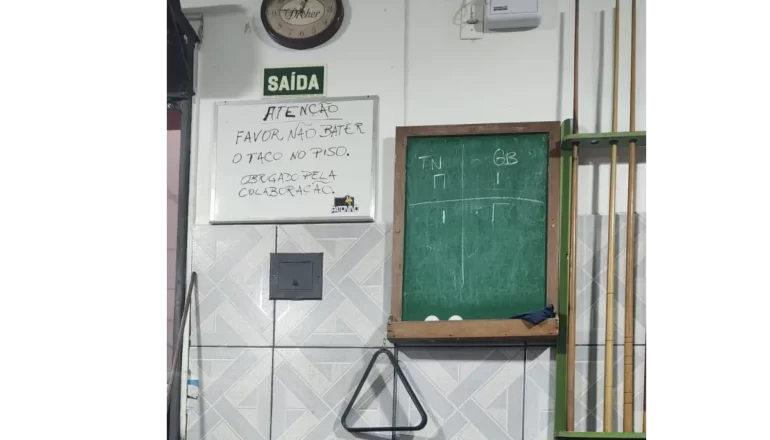 Dreher
SAÍDA
ATENÇÃO
FAVOR NÃO BATER
O TACO NO PISO.
OBRIGADO PELA
COLABORAÇÃO.
TN GB